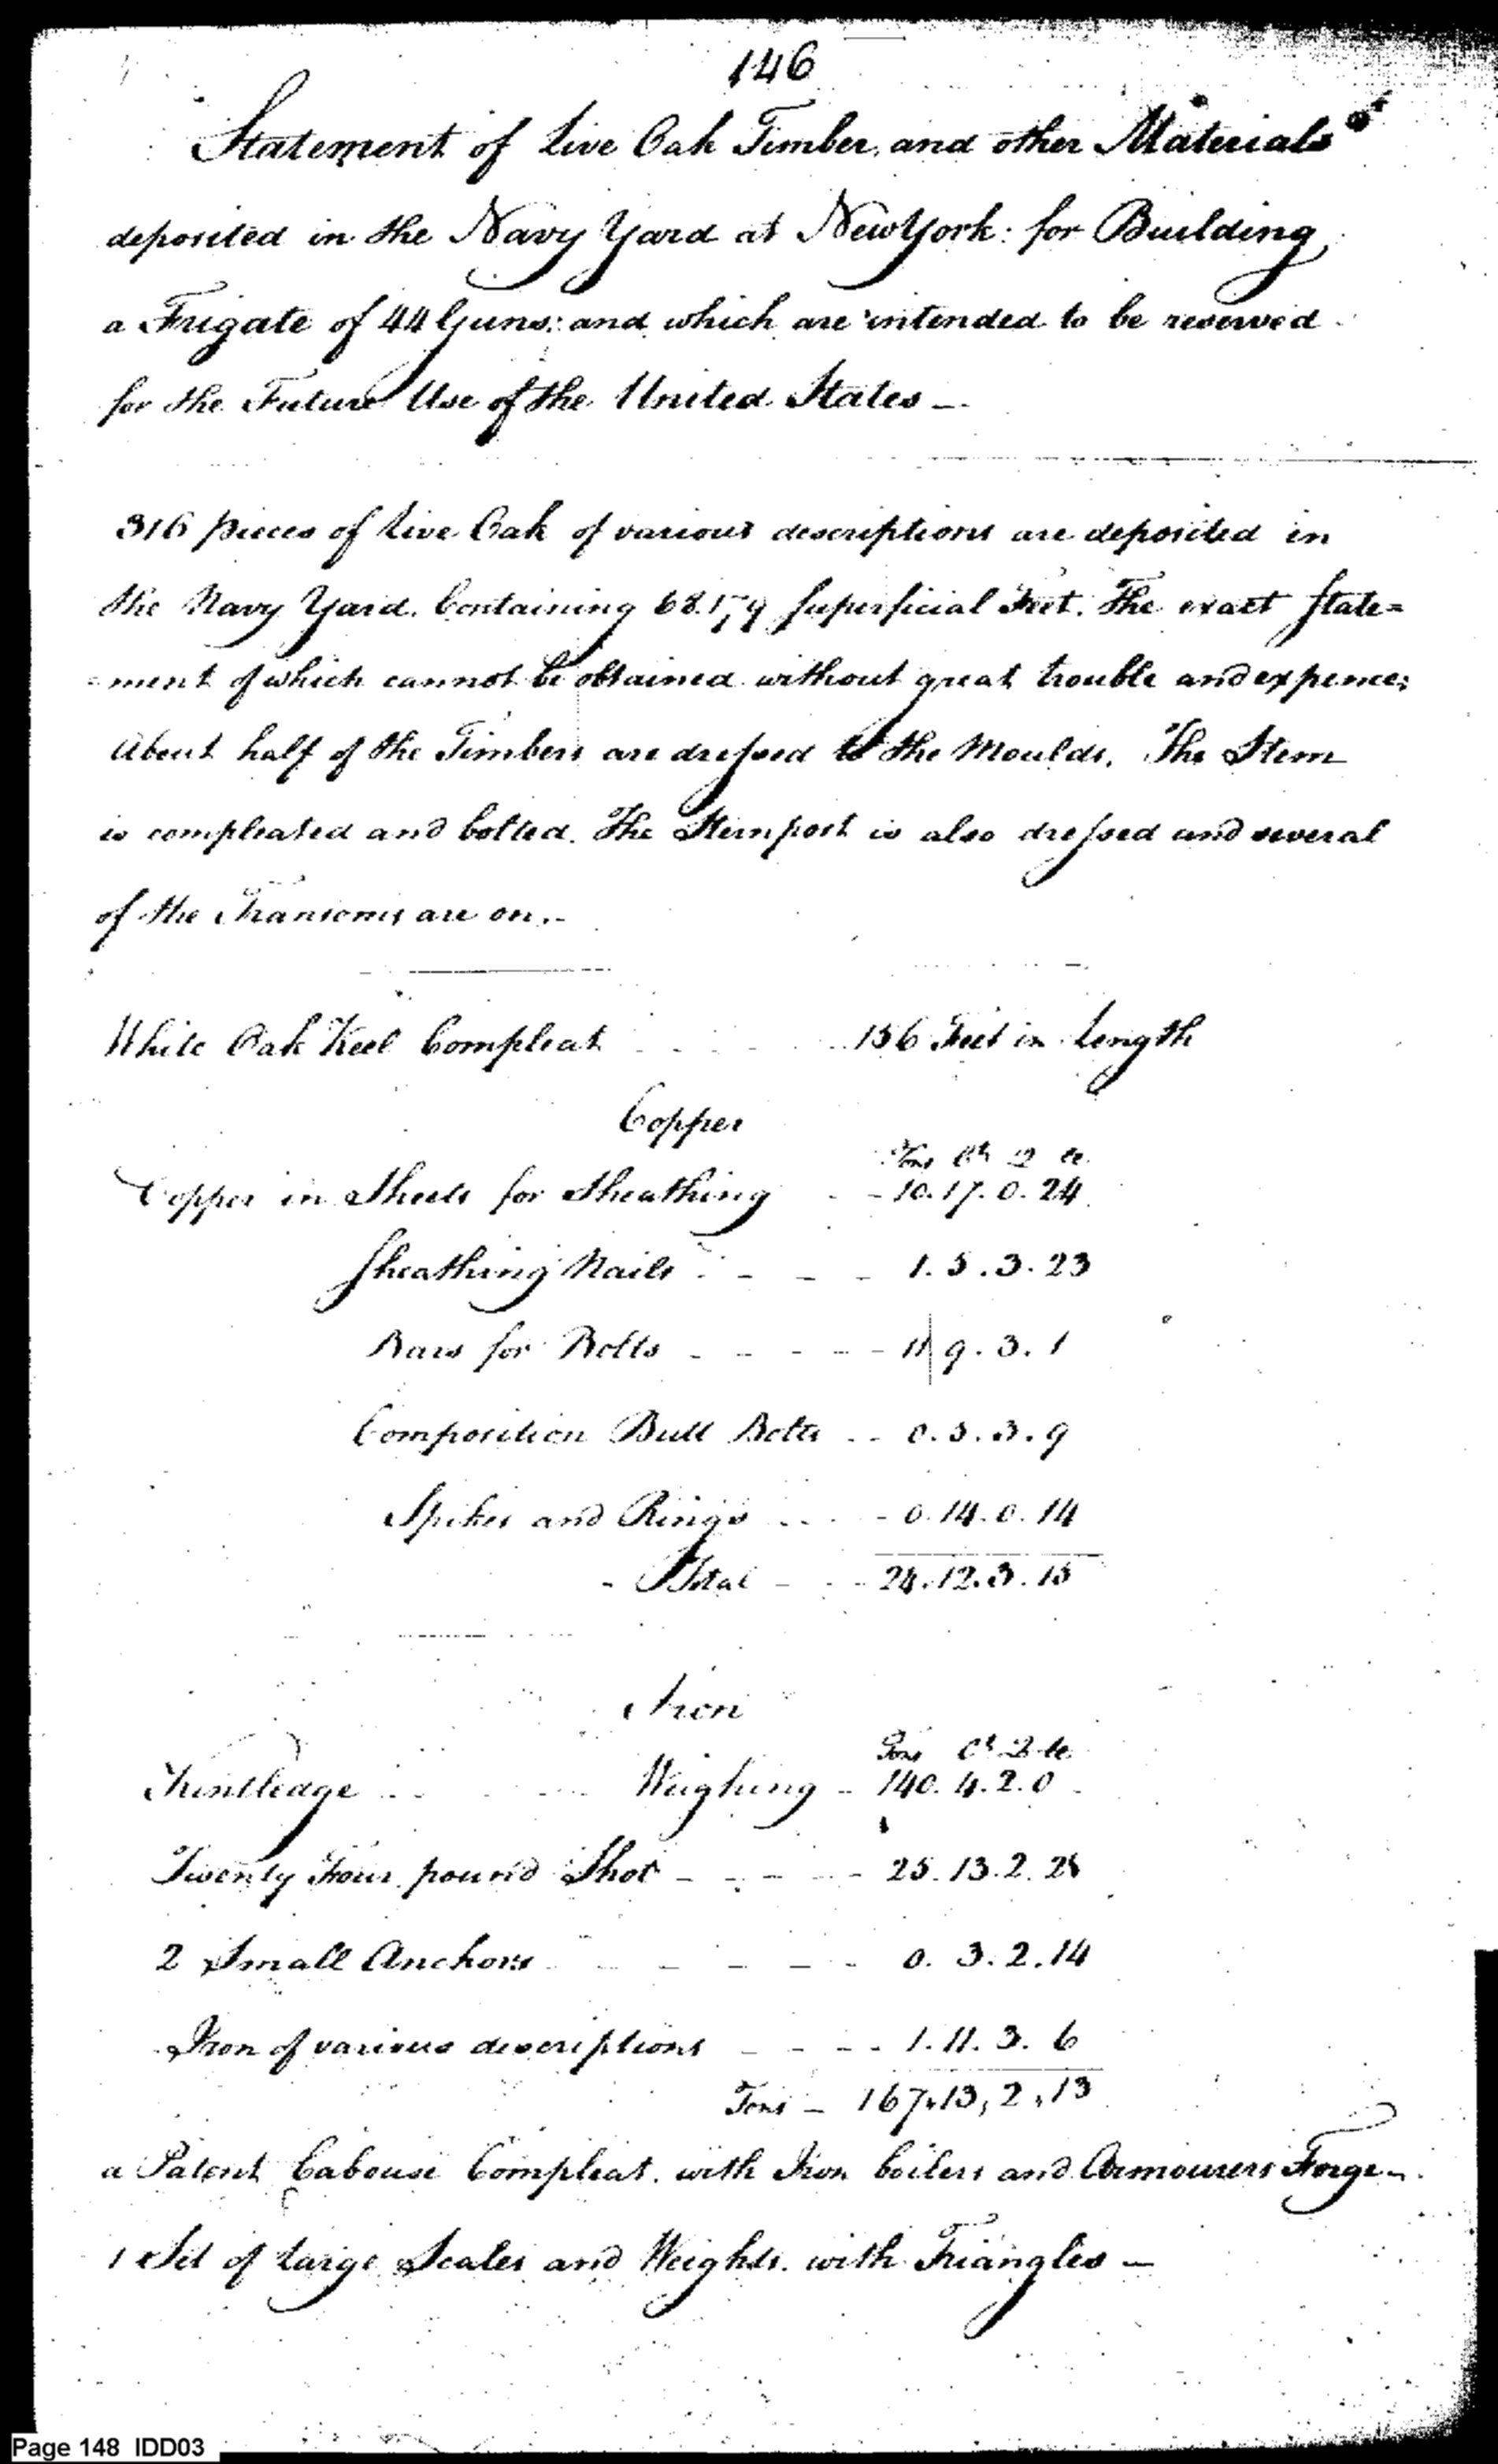 146
Statement of Live Oak Timber, and other Materials
deposited in the Navy Yard at New York: for Building
a Frigate of 44 Guns: and which are intended to be reserved
for the Future Use of the United States —
316 pieces of Live Oak of various descriptions are deposited in
the Navy Yard. Containing 68.159 superficial Feet. The exact State=
=ment of which cannot be obtained without great trouble and expence;
About half of the Timbers are dressed to the Moulds. The Stem
is compleated and bolted. The Sternpost is also dressed and several
of the Transoms are on. -
White Oak Keel Compleat 156 Feet in Length
Copper
Tons Ct Q lb
Copper in Sheets for Sheathing - 10.17.0.24
Sheathing Nails - - - 1.5.3.23
Bars for Bolts - - - - - 11 9.3.1
Composition Butt Bolts - - 0.5.3.9
Spikes and Rings - - - 0.14.0.14
Total - - - 24.12.3.15
Iron
Tons Ct Q lb
Kentledge Weighing - 140.4.2.0
Twenty Four pound Shot - - - - 25.13.2.21
2 Small Anchors - - - - 0.3.2.14
Iron of various descriptions - - - - 1.11.3.6
Tons - 167.13,2,13
a Patent Cabouse Compleat. with Iron boilers and Armourers Forge -
1 Set of large Scales and Weights. with Triangles —
Page 148 IDD03